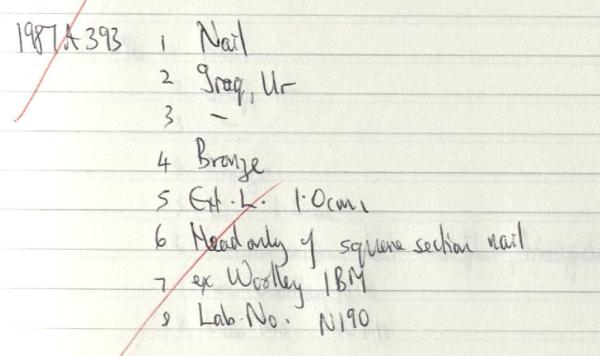 1987A393 1 Nail
2 Iraq, Ur
3 -
4 Bronze
5 Ext. L. 1.0cm
6 Head only of square section nail
7 ex Woolley /BM
8 Lab. No. N190